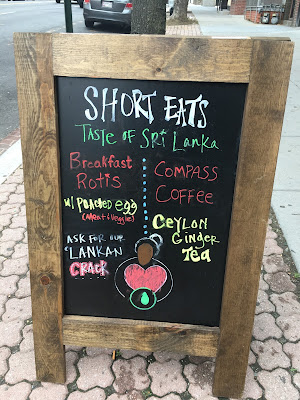 SHORT EATS
Taste of Sri Lanka
Breakfast
Rotis
w/ Poached egg
(meat & veggie)
ASK FOR OUR
"LANKAN
CRACK"
COMPASS
COFFEE
CEYLON
GINDER
TEA